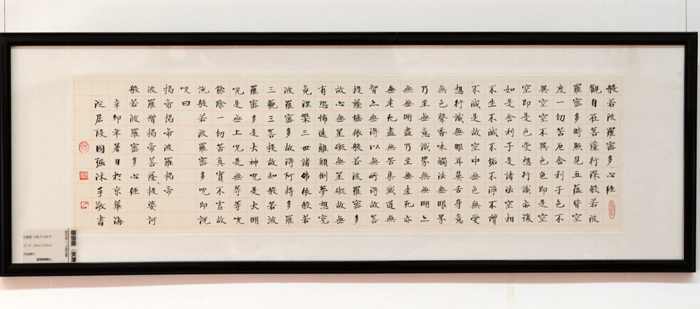 般若波羅蜜多心經
觀自在菩薩行深般若波
羅蜜多時照見五蘊皆空
度一切苦厄舍利子色不
異空空不異色色即是空
空即是色受想行識亦復
如是舍利子是諸法空相
不生不滅不垢不淨不增
不減是故空中無色無受
想行識無眼耳鼻舌身意
無色聲香味觸法無眼界
乃至無意識界無無明亦
無無明盡乃至無老死亦
無老死盡無苦集滅道無
智亦無得以無所得故菩
提薩埵依般若波羅蜜多
故心無罣礙無罣礙故無
有恐怖遠離顛倒夢想究
竟涅槃三世諸佛依般若
波羅蜜多故得阿耨多羅
三藐三菩提故知般若波
羅蜜多是大神咒是大明
咒是無上咒是無等等咒
能除一切苦真實不虛故
說般若波羅蜜多咒即說
咒曰
揭帝揭帝波羅揭帝
波羅僧揭帝菩薩提娑訶
般若波羅蜜多心經
辛卯年日於京華海
淀居段國强沐手敬書